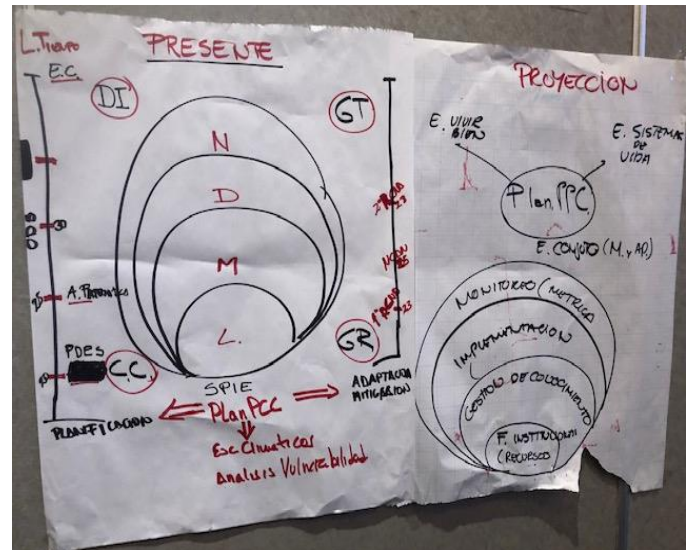 L. Tiempo
PRESENTE
E.C.
DI
GT
N
D
M
L.
PDES
C.C.
GR
SPIE
ADAPTACION
MITIGACION
PLANIFICACION
Plan PCC
Esc Climaticos
Analisis Vulnerabilidad
PROYECCION
E. VIVIR
BIEN
E. SISTEMAS
DE
VIDA
Plan.PPC.
E. CONJUTO (M. y AD.)
MONITOREO (METRICA
IMPLEMENTACION
GESTION DE CONOCIMIENTO
F. INSTITUCIONAL
(RECURSOS)